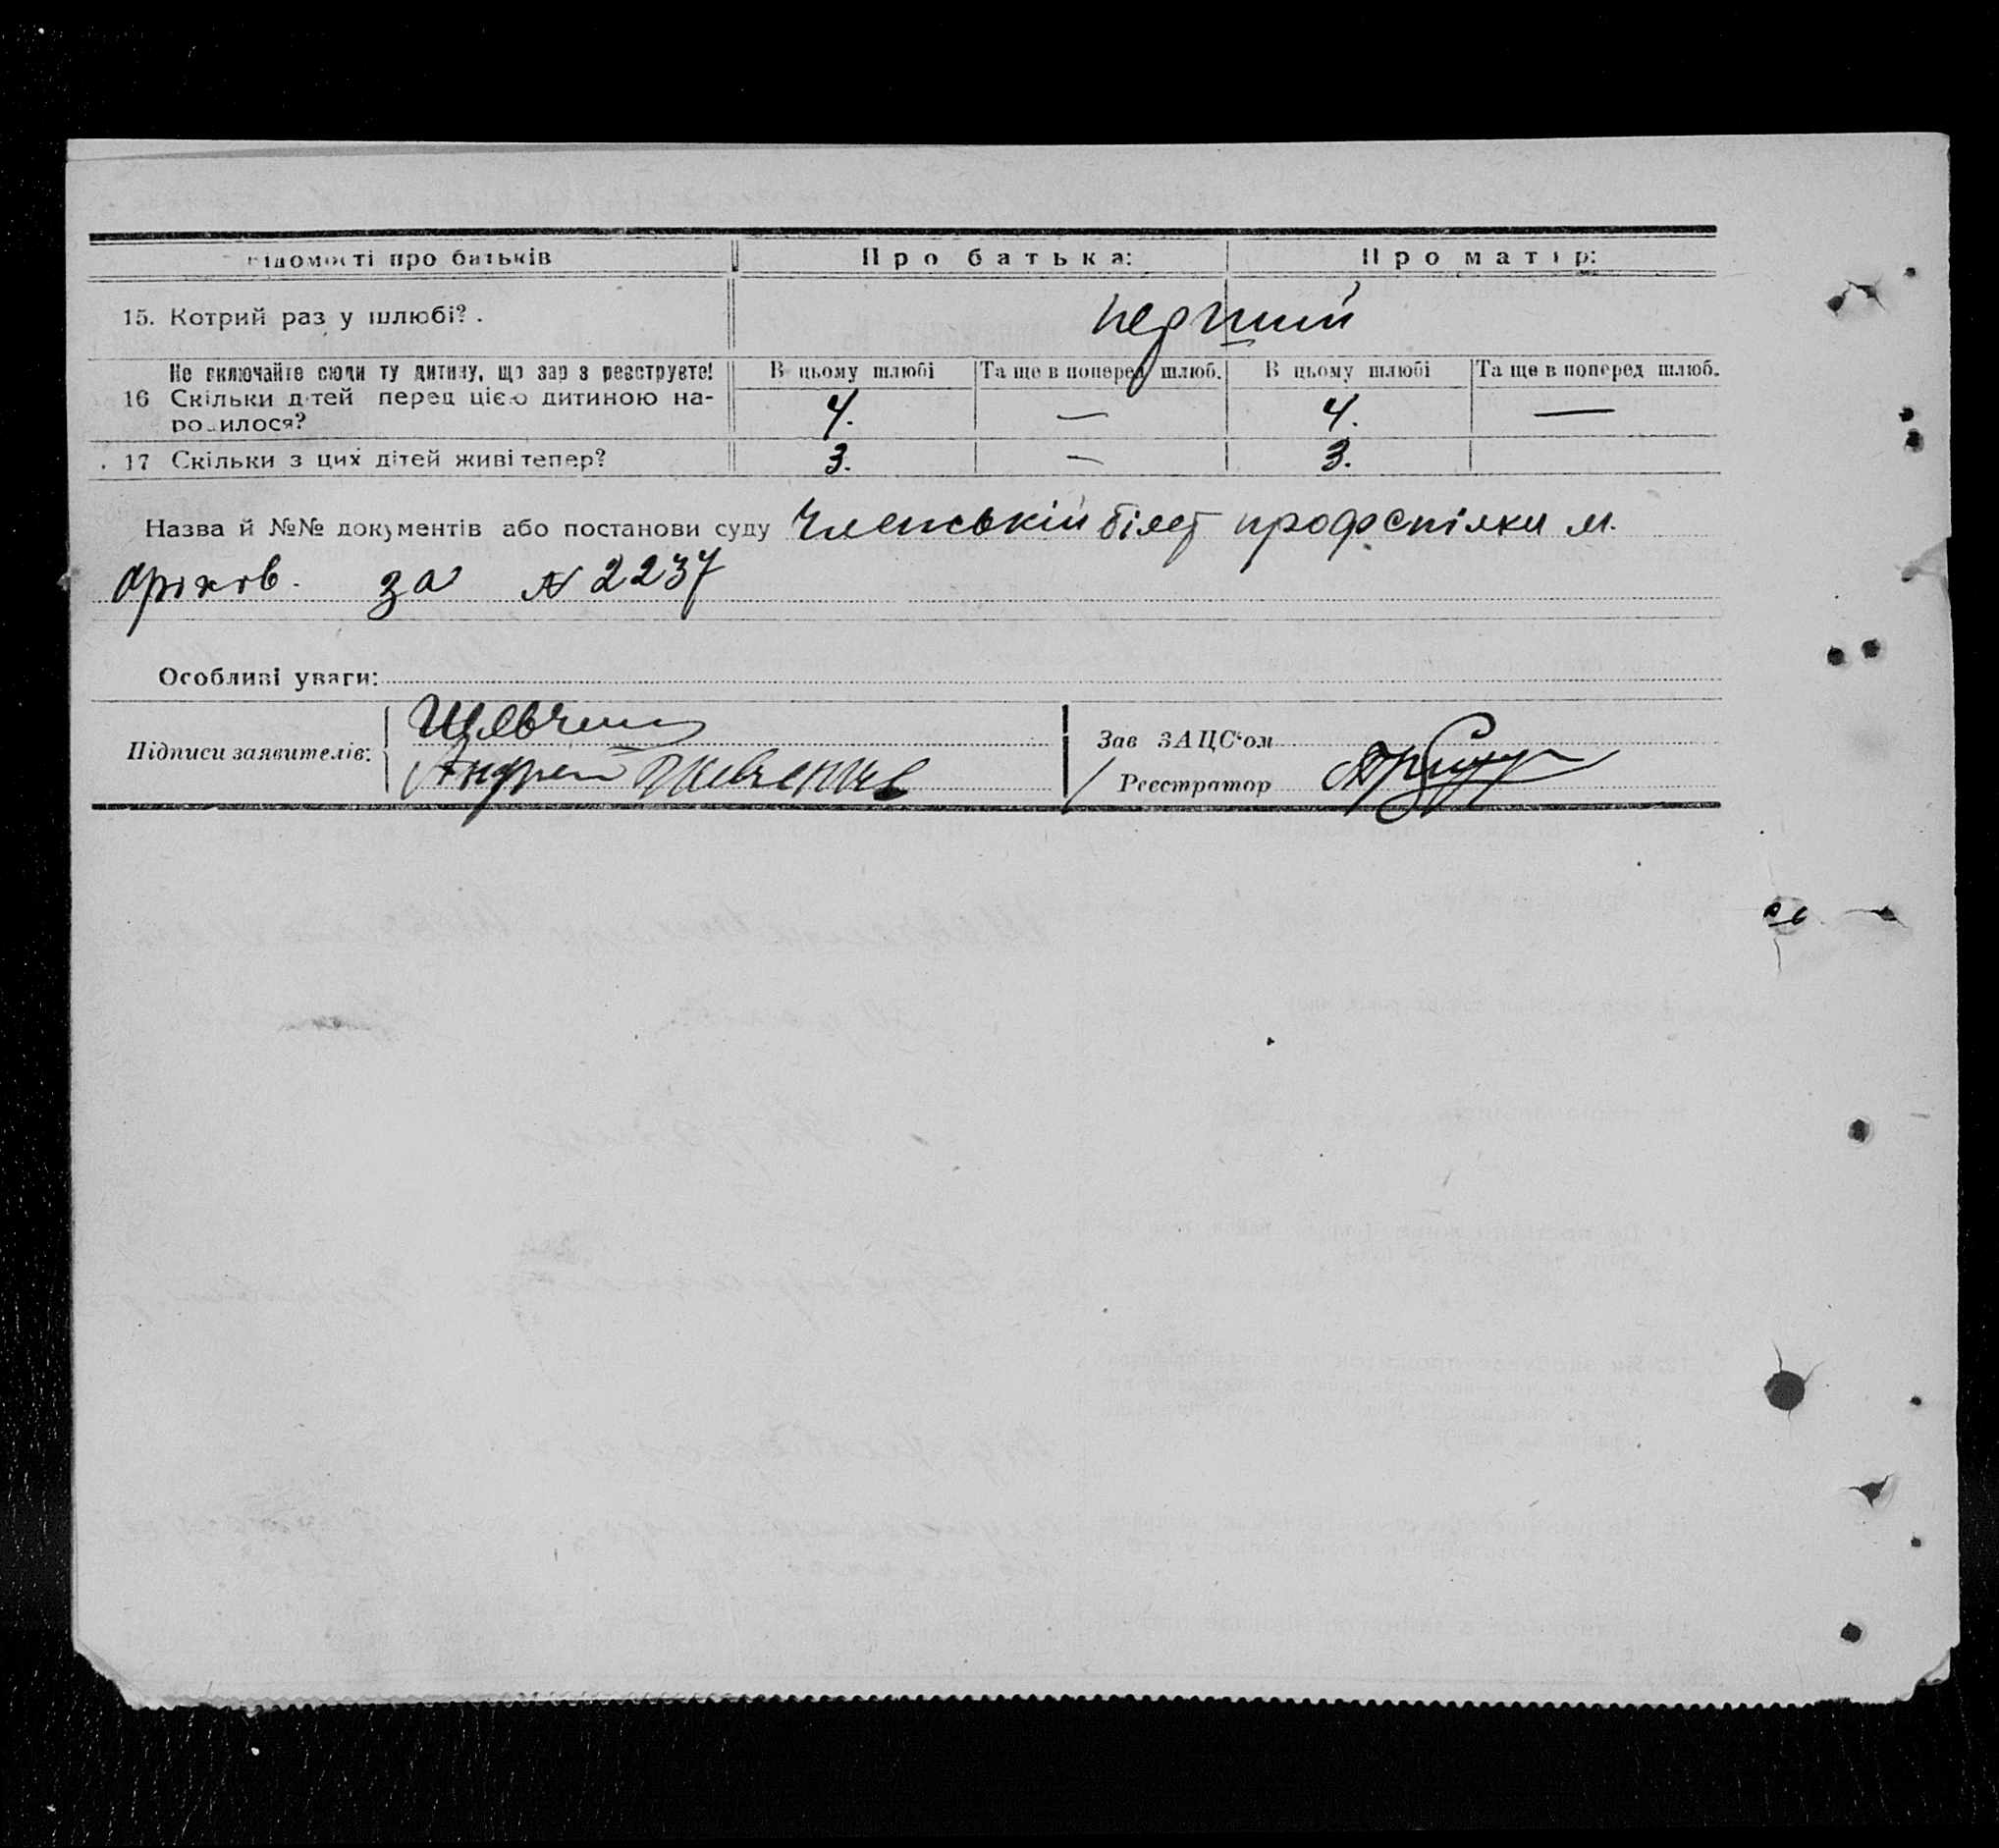 ідомості про батьків Про батька: Про матір:
15. Котрий раз у шлюбі? . перший
Не включайте сюди ту дитину, що зараз реєструєте! В цьому шлюбі Та ще в поперед шлюб. В цьому шлюбі Та ще в поперед шлюб.
16 Скільки дітей перед цією дитиною на- 4. — 4. —
родилося?
17 Скільки з цих дітей живі тепер? 3. — 3.
Назва й №№ документів або постанови суду Членській білет профспілки м.
Оріхів. за № 2237
Особливі уваги:
Підписи заявителів: Шевченко
Андрей Шевченко
Зав ЗАЦС‘ом
Реєстратор